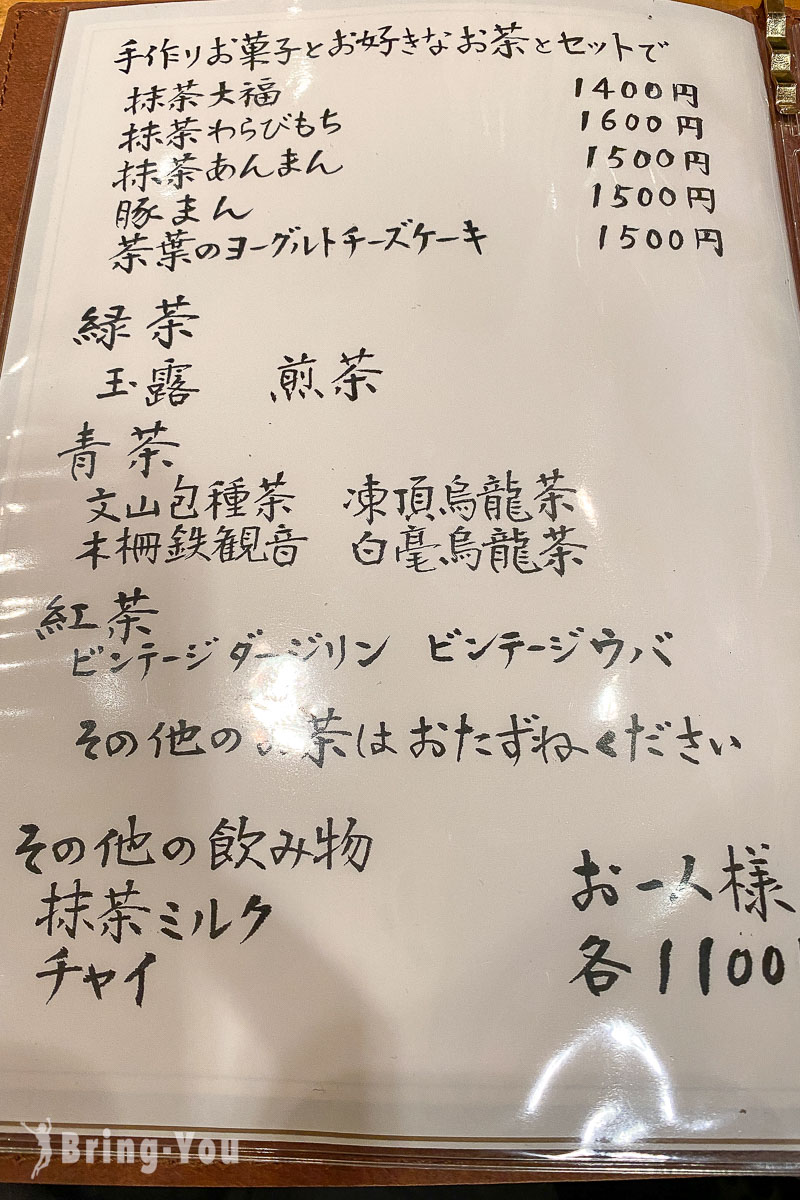 手作りお菓子とお好きなお茶とセットで
抹茶大福 1400円
抹茶わらびもち 1600円
抹茶あんまん 1500円
豚まん 1500円
茶葉のヨーグルトチーズケーキ 1500円
緑茶
玉露 煎茶
青茶
文山包種茶 凍頂烏龍茶
木柵鉄観音 白毫烏龍茶
紅茶
ビンテージダージリン ビンテージウバ
その他のお茶はおたずねください
その他の飲み物
抹茶ミルク
チャイ
お一人様
各1100
Bring-You